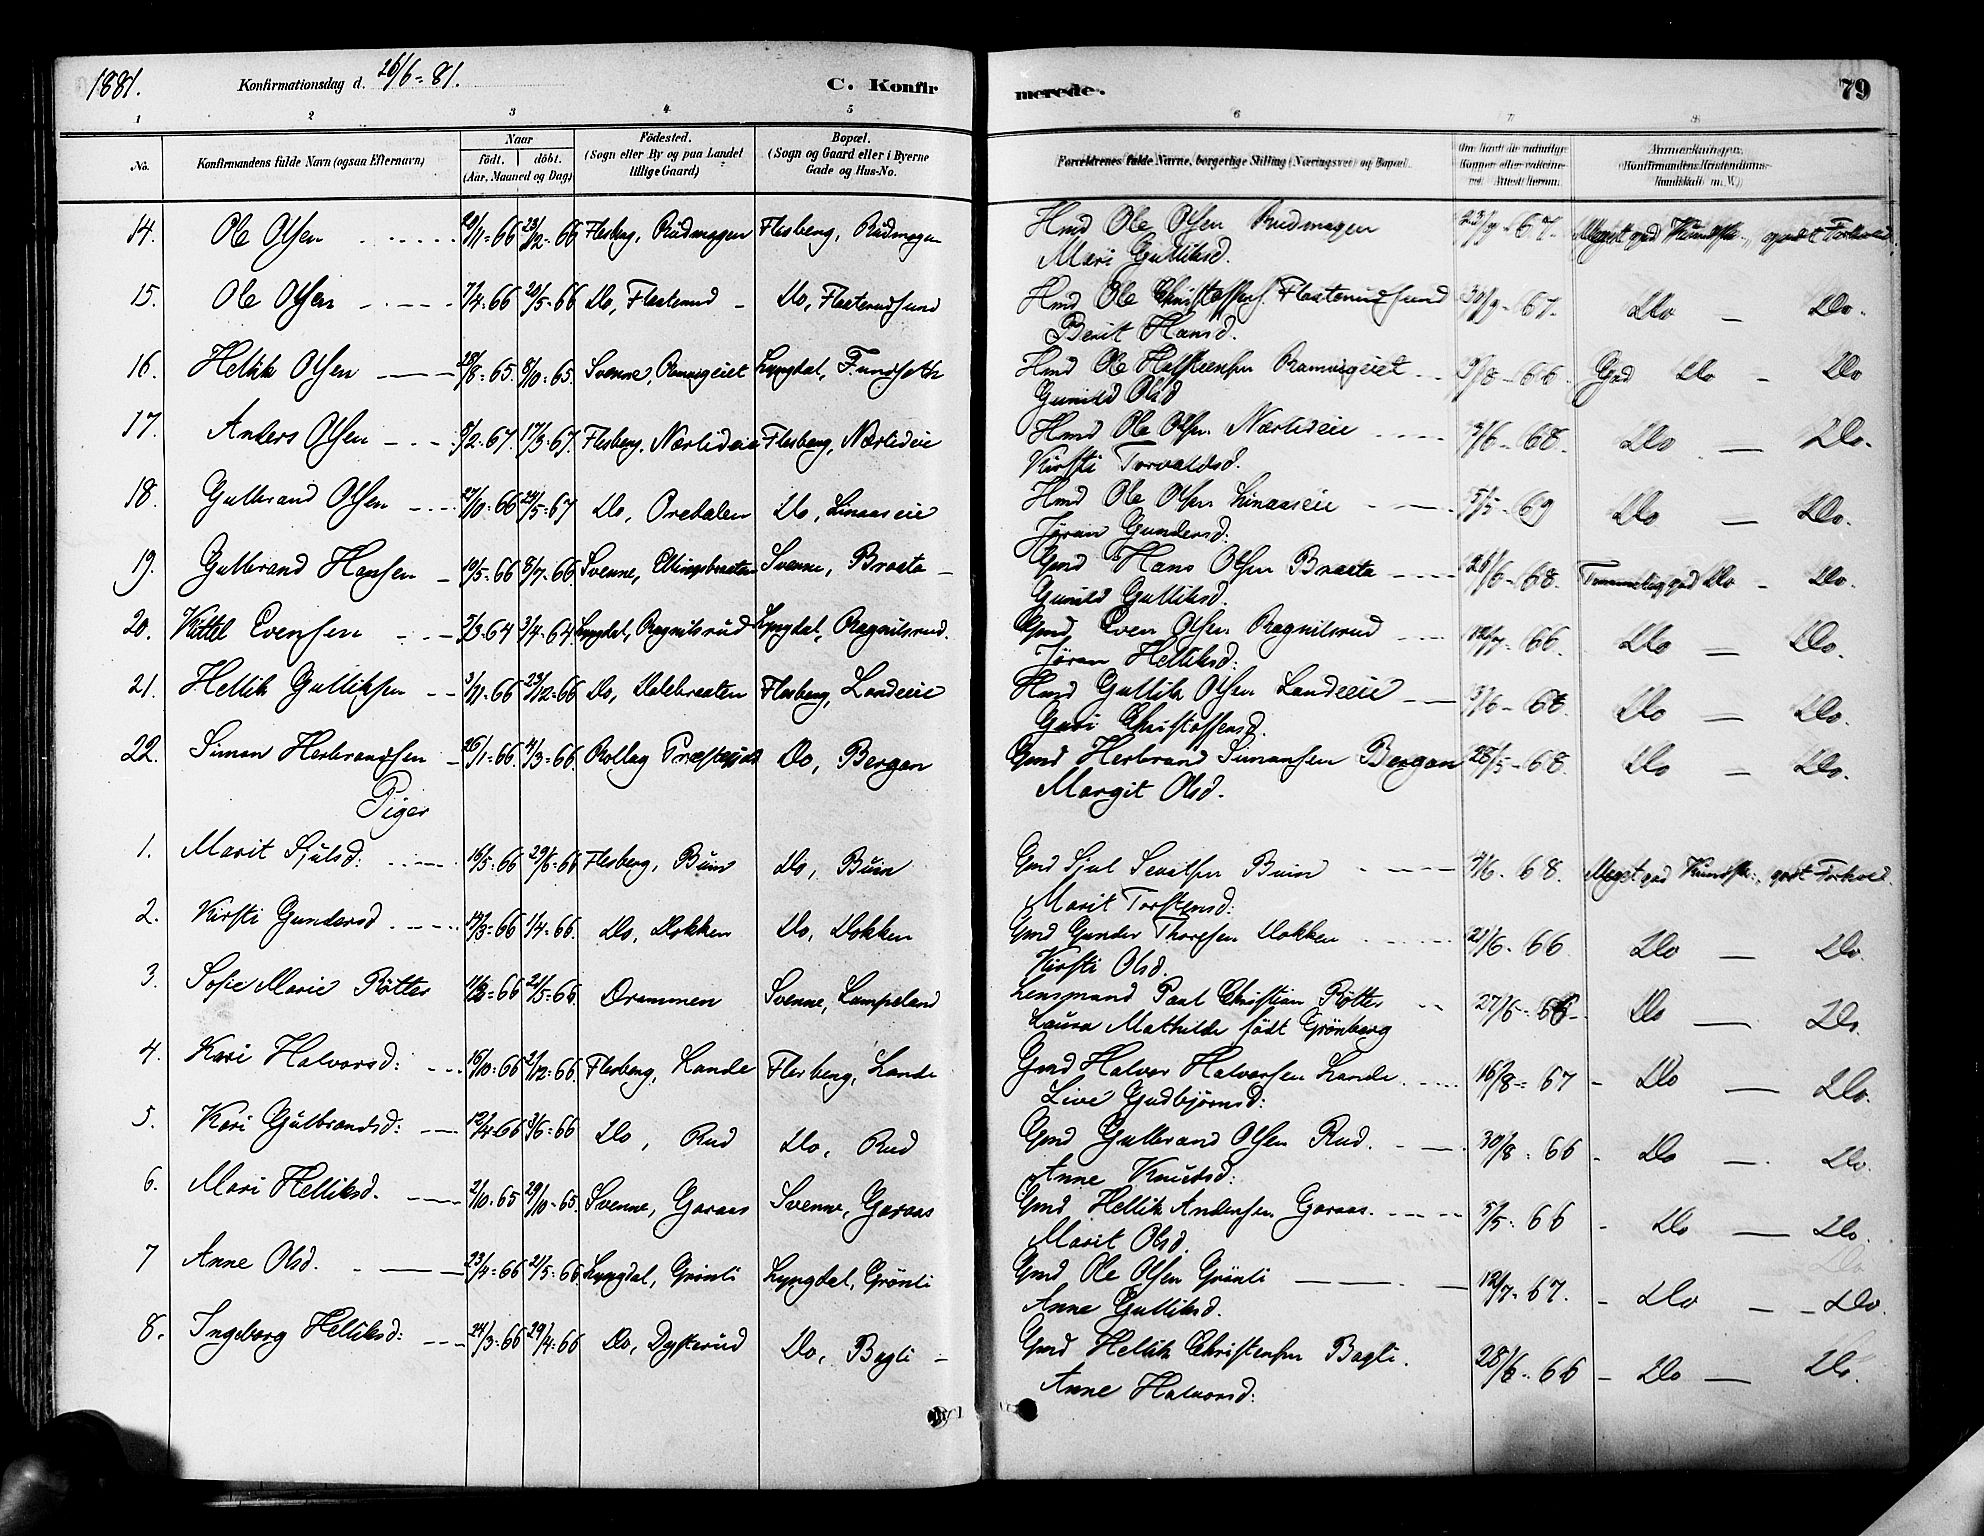 1881. Konfirmationsdag d. 26/6-81. C. Konfir
merede. 79
1 2 3 4 5 6 7 8
No. Konfirmandens fulde Navn (ogsaa Efternavn) Naar födt. döbt. (Aar, Maaned og Dag) Födested. (Sogn eller By og paa Landet tillige Gaard) Bopæl. (Sogn og Gaard eller i Byerne Gade og Hus-No.
Forældrenes fulde Navne, borgerlige Stilling (Næringsvei) og Bopæl. Anmærkninger. (Konfirmandens Kristendoms-Kundskab m. V.)
14. Ole Olsen 20/11=66 23/12=66 Flesberg, Rudmogen Flesberg, Rudmogen Hmd Ole Olsen Rudmogen 23/9-67. Meget god Kundsk., godt Forhold.
Mari Gulliksd.
15. Ole Olsen 7/4=66 20/5=66 Do, Flaterud Do, Flaterudsund Hmd Ole Christoffers. Flaterudsund 30/9-67. Do Do.
Berit Hansd.
16. Hellik Olsen 28/8=65. 8/10=65. Svenne, Lyngdal, Hmd Ole 9/8-66 God Do Do
Gunild Olsd
17. Anders Olsen 5/2=67. 17/3=67. Flesberg, Nærlideie Flesberg, Nærlideie Hmd Ole Olsen Nærlideie 3/6-68. Do Do.
Kirsti Torvaldsd.
18. Gulbrand Olsen 27/10=66 24/5=67 Do, Oredalen Do, Linaaseie Hmd Ole Olsen Linaaseie 5/5-69 Do Do.
Jøran Gundersd:
19. Gulbrand Hansen 10/5=66 8/7=66. Svenne, Svenne, Braata Gmd Hans Olsen Braata 26/6-68. Temmelig god Do Do.
Gunild Gulliksd.
20. Kittil Evensen 2/3-64 3/4-64. Lyngdal, Ragnilsrud Lyngdal, Ragnilsrud. Gmd Even Olsen Ragnilsrud 12/7-66. Do Do.
Jøran Helliksd:
21. Hellik Gulliksen 3/11=66 23/12=66 Do, Dalebraaten Flesberg, Landeeie Hmd Gullik Olsen Landeeie 3/6-68. Do Do.
Guri Christoffersd.
22. Simon Herbrandsen 26/1=66. 4/3=66. Rollag Præstegjæld Do, Bergan Gmd Herbrand Simonsen Bergan 28/5-68. Do Do.
Margit Olsd.
Piger
1. Marit Sjulsd: 16/5=66 29/6=66 Flesberg, Buin Do, Buin Gmd Sjul Buin 3/6. 68. Meget god Kundsk:, godt Forhold.
Marit Torstensd:
2. Kirsti Gundersd 14/3=66 1/4=66. Do, Dokken Do, Dokken Gmd Gunder Thorgsen Dokken 21/6-66 Do Do
Kirsti Olsd.
3. Sofie Marie Røtter 21/5=66. Drammen Svenne, Lampeland Lensmand Paul Christian Røtter 27/6-66- Do Do.
Laura Mathilde født Grönberg
4. Kari Halvorsd: 16/10=66 2/12=66. Flesberg, Lande Flesberg, Lande Gmd Halvor Halvorsen Lande 16/8=67 - Do Do.
Live Gudbjørnsd:
5. Kari Gulbrandsd: 12/4=66 3/6=66 Do, Rud Do, Rud Gmd Gulbrand Olsen Rud. 30/8=66 - Do Do.
Anne Knudsd:
6. Mari Helliksd. 2/10=65 29/10=65. Svenne, Garaas Svenne, Garaas Gmd Hellik Andersen Garaas. 5/5=66 - Do Do.
Marit Olsd.
7 Anne Olsd. 23/4=66 21/5=66 Lyngdal, Grönli Lyngdal, Grönli Gmd Ole Olsen Grönli 12/7-67. - Do Do.
Anne Gulliksd.
8. Ingeborg Helliksd: 24/3=66 29/4=66 Do, Dyrterud Do, Bagli Gmd Hellik Christensen Bagli. 28/6-66 - Do Do.
Anne Halvorsd: